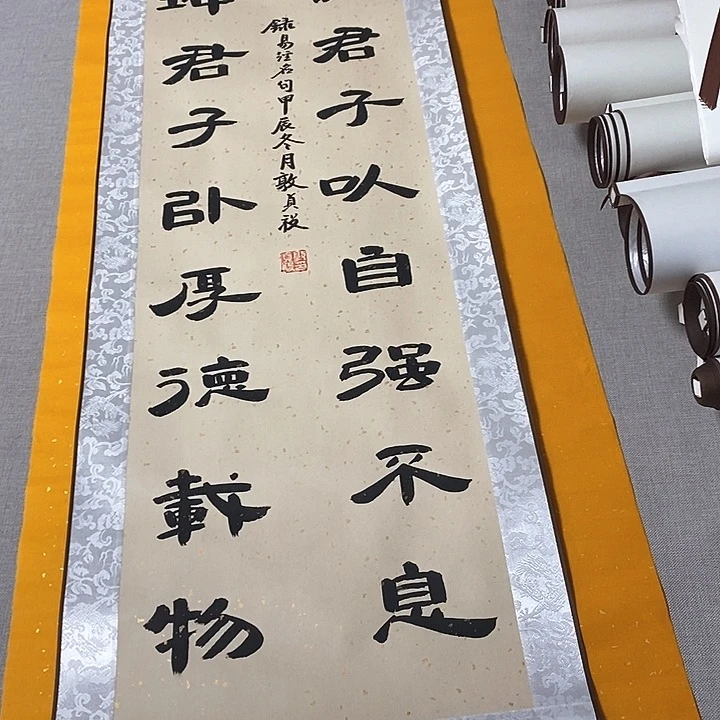 君子以自强不息
坤君子以厚德载物
录易经名句甲辰冬月敦贞书